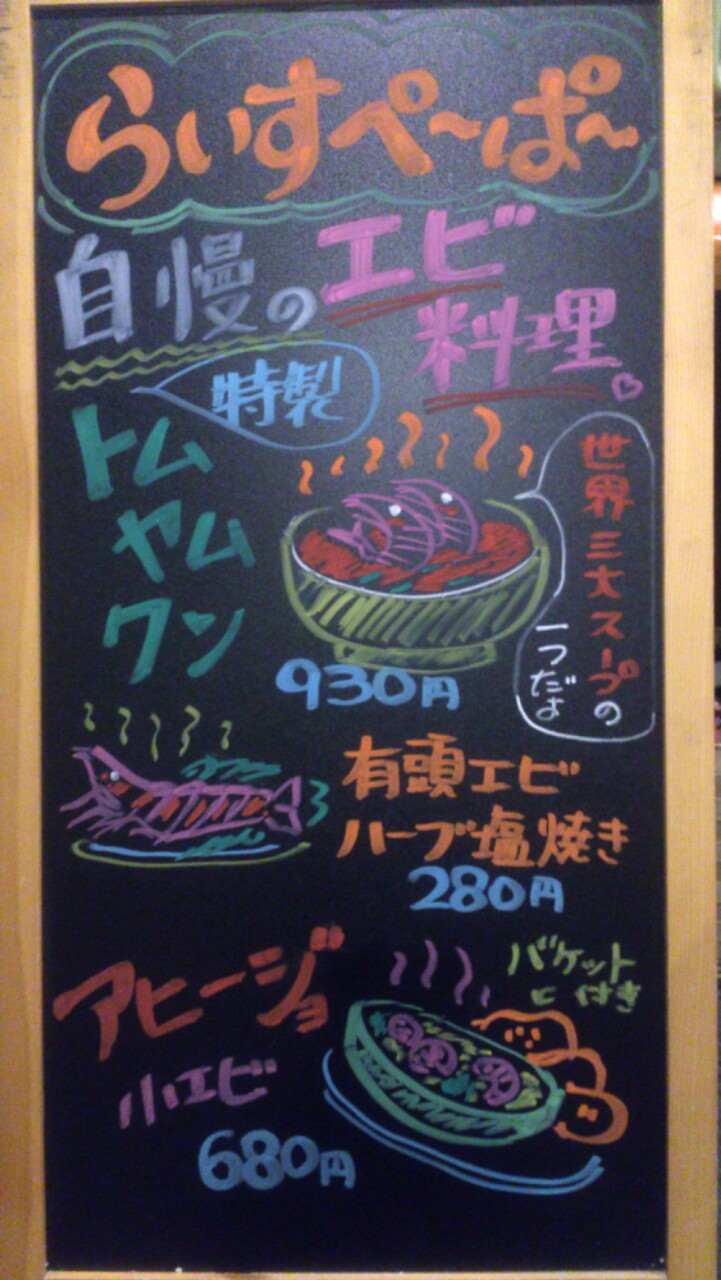 らいすぺ〜ぱ〜
自慢のエビ
料理
特製
トム
ヤム
クン
世界三大スープの
一つだよ
930円
有頭エビ
ハーブ塩焼き
280円
アヒージョ
バケット
付き
小エビ
680円